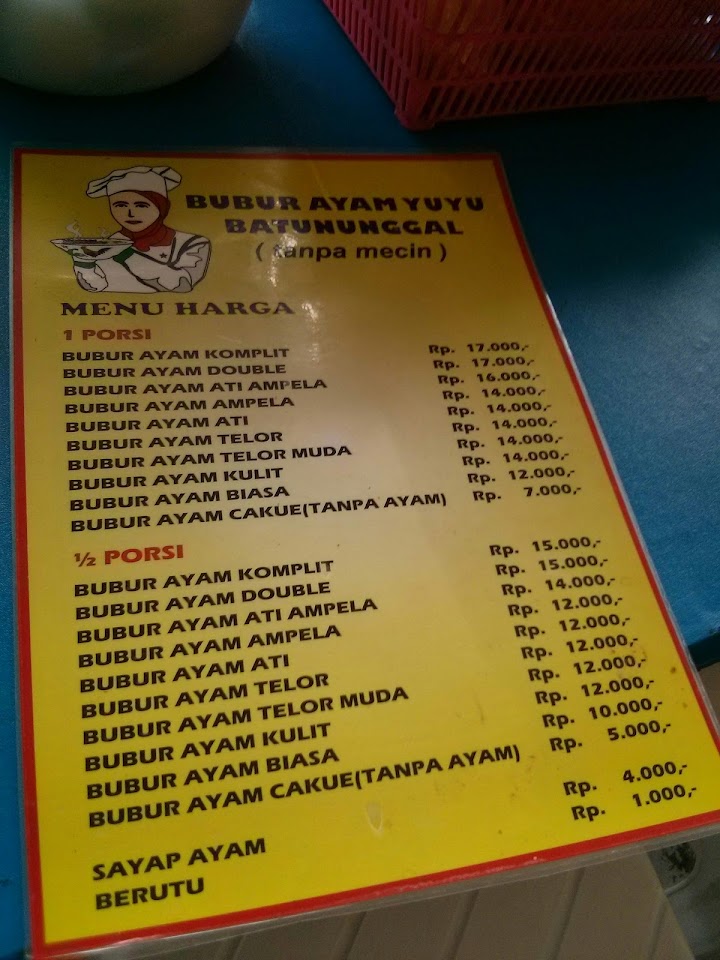 BUBUR AYAM YUYU
BATUNUNGGAL
( tanpa mecin )
MENU HARGA
1 PORSI
BUBUR AYAM KOMPLIT Rp. 17.000,-
BUBUR AYAM DOUBLE Rp. 17.000,-
BUBUR AYAM ATI AMPELA Rp. 16.000,-
BUBUR AYAM AMPELA Rp. 14.000,-
BUBUR AYAM ATI Rp. 14.000,-
BUBUR AYAM TELOR Rp. 14.000,-
BUBUR AYAM TELOR MUDA Rp. 14.000,-
BUBUR AYAM KULIT Rp. 14.000,-
BUBUR AYAM BIASA Rp. 12.000,-
BUBUR AYAM CAKUE(TANPA AYAM) Rp. 7.000,-
½ PORSI
BUBUR AYAM KOMPLIT Rp. 15.000,-
BUBUR AYAM DOUBLE Rp. 15.000,-
BUBUR AYAM ATI AMPELA Rp. 14.000,-
BUBUR AYAM AMPELA Rp. 12.000,-
BUBUR AYAM ATI Rp. 12.000,-
BUBUR AYAM TELOR Rp. 12.000,-
BUBUR AYAM TELOR MUDA Rp. 12.000,-
BUBUR AYAM KULIT Rp. 12.000,-
BUBUR AYAM BIASA Rp. 10.000,-
BUBUR AYAM CAKUE(TANPA AYAM) Rp. 5.000,-
SAYAP AYAM Rp. 4.000,-
BERUTU Rp. 1.000,-